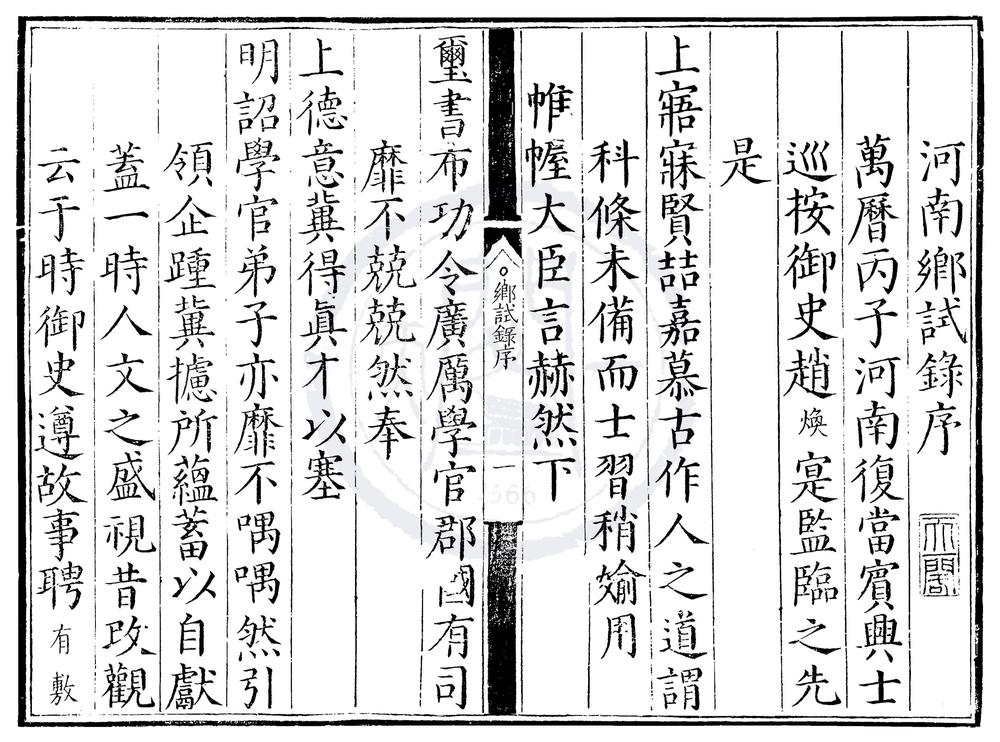 河南鄉試錄序
天一閣
萬曆丙子河南復當賓興士
巡按御史趙煥寔監臨之先
是
上寤寐賢喆嘉慕古作人之道謂
科條未備而士習稍媮用
帷幄大臣言赫然下
鄉試錄序
一
璽書布功令廣厲學官郡國有司
靡不兢兢然奉
上德意冀得眞才以塞
明詔學官弟子亦靡不喁喁然引
領企踵冀攄所蘊蓄以自獻
蓋一時人文之盛視昔改觀
云于時御史遵故事聘有敷